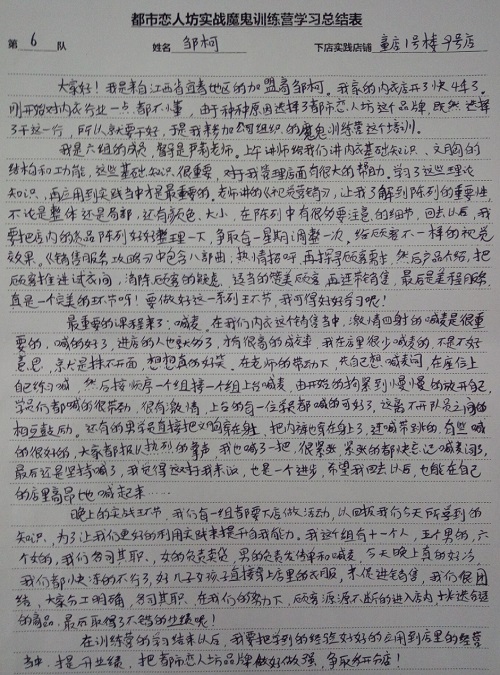 都市恋人坊实战魔鬼训练营学习总结表
第 6 队 姓名 邹柯 下店实践店铺 童店1号楼9号店
大家好！我是来自江西省宜春地区的加盟商邹柯。我家的内衣店开了快4年了。
刚开始对内衣行业一点都不懂，由于种种原因选择了都市恋人坊这个品牌，既然选择
了干这一行，所以就要干好，于是我来参加公司组织的魔鬼训练营这个培训。
我是六组的成员，老师。上午讲师给我们讲内衣基础知识、文胸的
结构和功能，这些基础知识很重要，对于我管理店面有很大的帮助。学习了这些理论
知识，再应用到实践当中才是最重要的。老师讲的《视觉营销》，让我了解到陈列的重要性，
不论是整体还是局部，还有颜色、大小，在陈列中有很多要注意的细节，回去以后，我
要把店内的货品陈列好好整理一下，争取每一星期调整一次。给顾客不一样的视觉
效果。《销售服务攻略》中包含八部曲：热情招呼，再探寻顾客需求，然后产品介绍，把
顾客推进试衣间，消除顾客的疑虑，适当的赞美顾客，再连带销售，最后是美程服务，
真是一个完美的环节呀！要做好这一系列环节，我可得好好学习呢！
最重要的课程来了：喊麦。在我们内衣这个销售当中，激情四射的喊麦是很重
要的，喊的好了，进店的人也就多了，才有很高的成交率，我在店里很少喊麦的，不是不好
意思，亲戚是抹不开面，想想真的好笑。在老师的带动下，先自己想喊麦词，在座位上
自己练习喊，然后按顺序一个组接一个组上台喊麦，由开始的拘累到慢慢的放开自己，
学员们都喊的很带动，很有激情，上台的每一位学员都喊的可好了，这离不开队员之间的
相互鼓励。还有的男学员直接把文胸穿在身，把内裤也穿在身上了，还喊带跳的，有些喊
的很好的，大家都报以热烈的掌声，我也喊了一把，很紧张，紧张的都快忘记喊麦词了，
最后还是坚持喊了，我觉得这对我来说，也是一个进步，希望我回去以后，也能在自己
的店里高昂地喊起来……
晚上的实战环节，我们每一组都要下店做活动，以回报我们今天所学到的
知识，为了让我们更好的利用实践来提升自我能力。我这个组有十一个人，五个男的，六
个女的，我们各司其职，女的负责卖货，男的负责发传单和喊麦，今天晚上真的好冷，
我们都快冻的不行了，好几个女孩子直接穿上店里的衣服，来促进销售，我们很团
结，大家分工明确，各司其职，在我们的努力下，顾客源源不断的进入店内，挑选合适
的商品，最后取得了不错的业绩呢！
在训练营的学习结束以后，我要把学到的经验好好的应用到店里的经营
当中，提升业绩，把都市恋人坊品牌做好做强，争取再开分店！